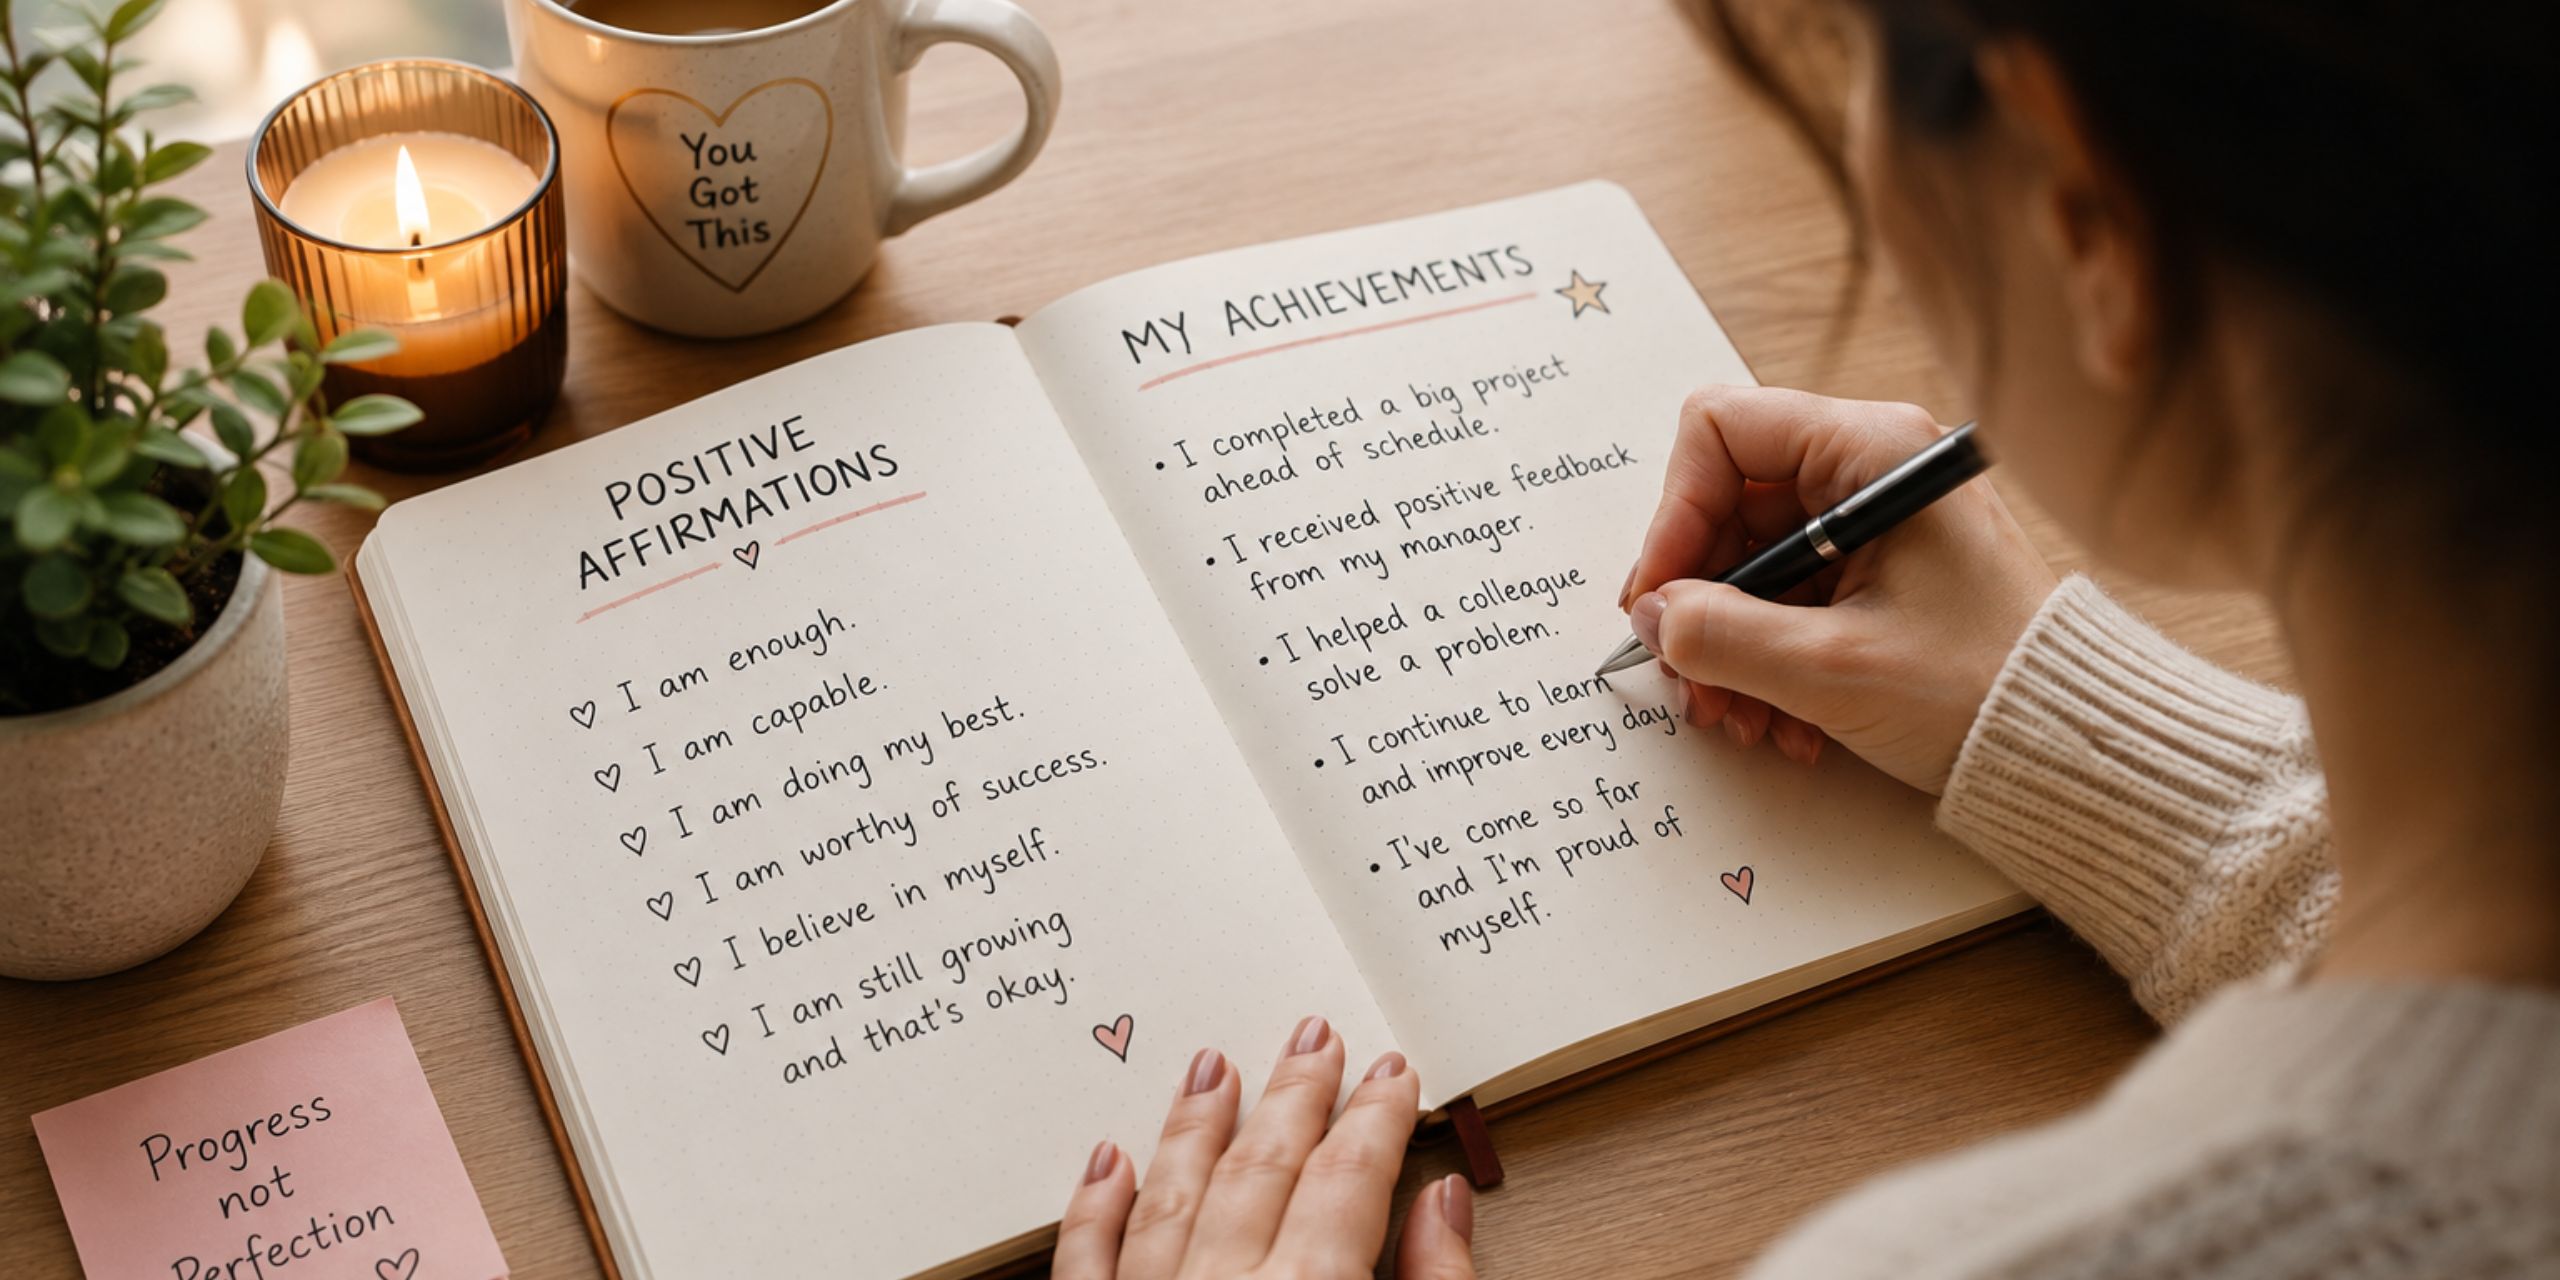 You
Got
This
POSITIVE
AFFIRMATIONS
I am enough.
I am capable.
I am doing my best.
I am worthy of success.
I believe in myself.
I am still growing
and that's okay.
MY ACHIEVEMENTS
• I completed a big project
ahead of schedule.
• I received positive feedback
from my manager.
• I helped a colleague
solve a problem.
• I continue to learn
and improve every day.
• I've come so far
and I'm proud of
myself.
Progress
not
Perfection